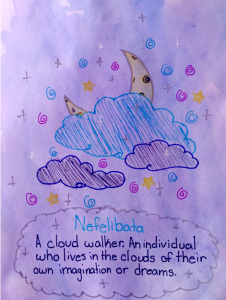 Nefelibata
A cloud walker. An individual
who lives in the clouds of their
own imagination or dreams.